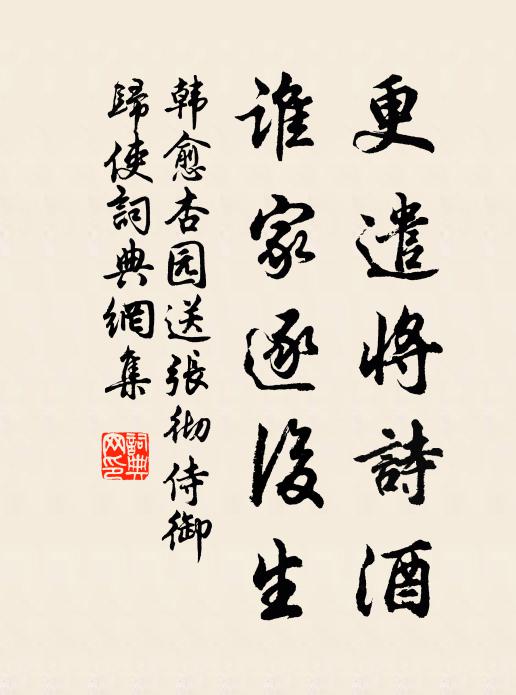 更遣將詩酒
谁家逐後生
韩愈杏园送張彻侍御
歸使詞典網集
詞典
网印